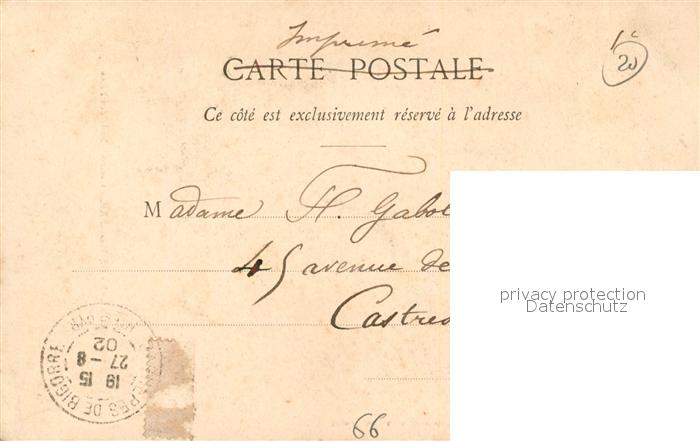 Imprimé
CARTE POSTALE
1c
20
Ce côté est exclusivement réservé à l'adresse
Madame H. Gabol
45 avenue de
Castres
privacy protection
Datenschutz
RES DE BIGORRE
19 15
27 - 8
02
66